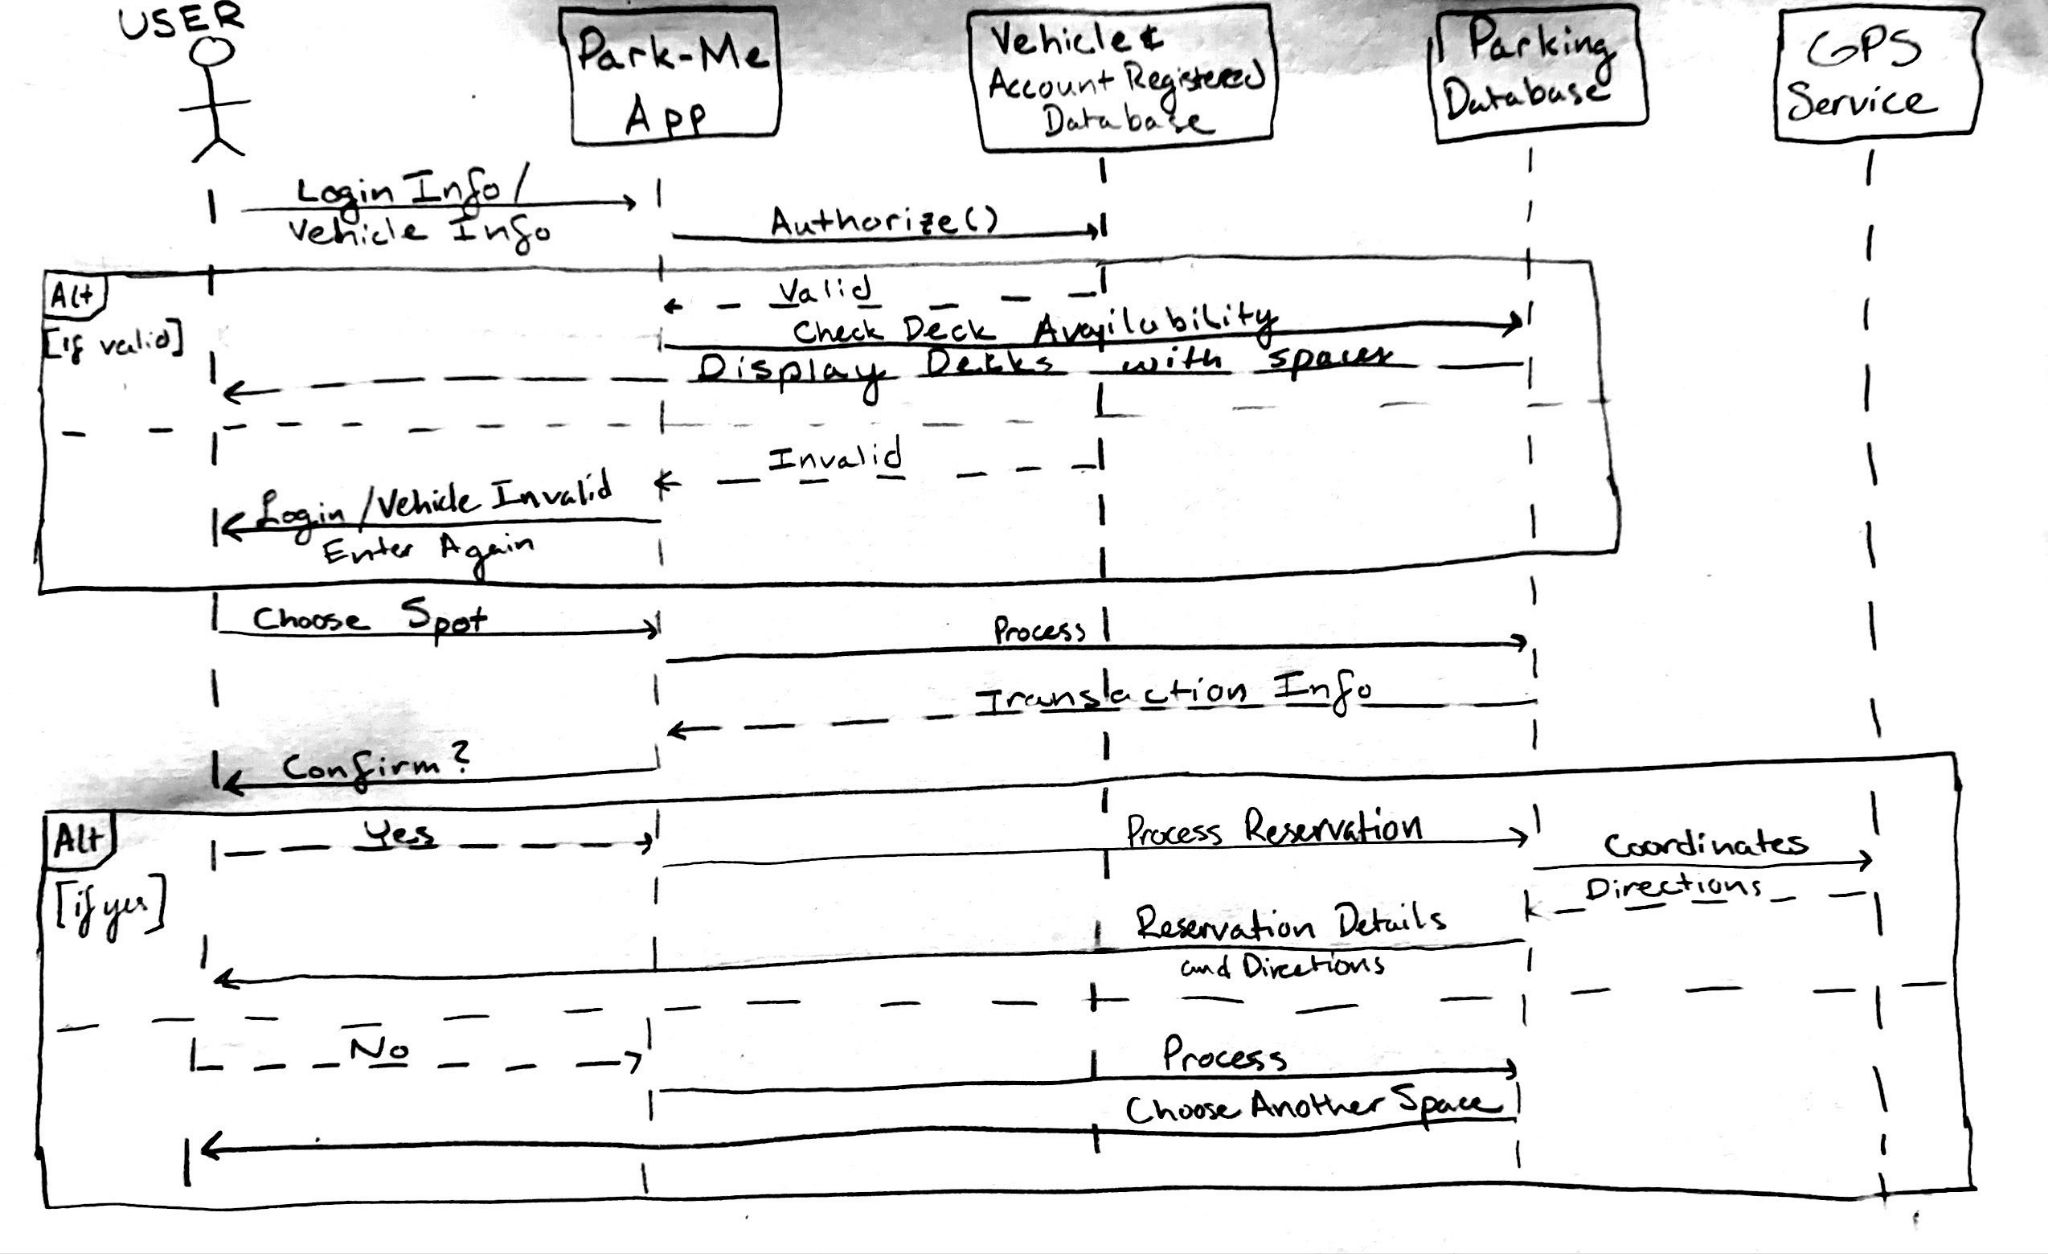 USER
Park-Me
App
Vehicle &
Account Registered
Database
Parking
Database
GPS
Service
Login Info /
Vehicle Info
Authorize()
Alt
[if valid]
Valid
Check Deck Availability
Display Decks with spaces
Invalid
Login/Vehicle Invalid
Enter Again
Choose Spot
Process
Translaction Info
Confirm?
Alt
[if yes]
Yes
Process Reservation
Coordinates
Directions
Reservation Details
and Directions
No
Process
Choose Another Space